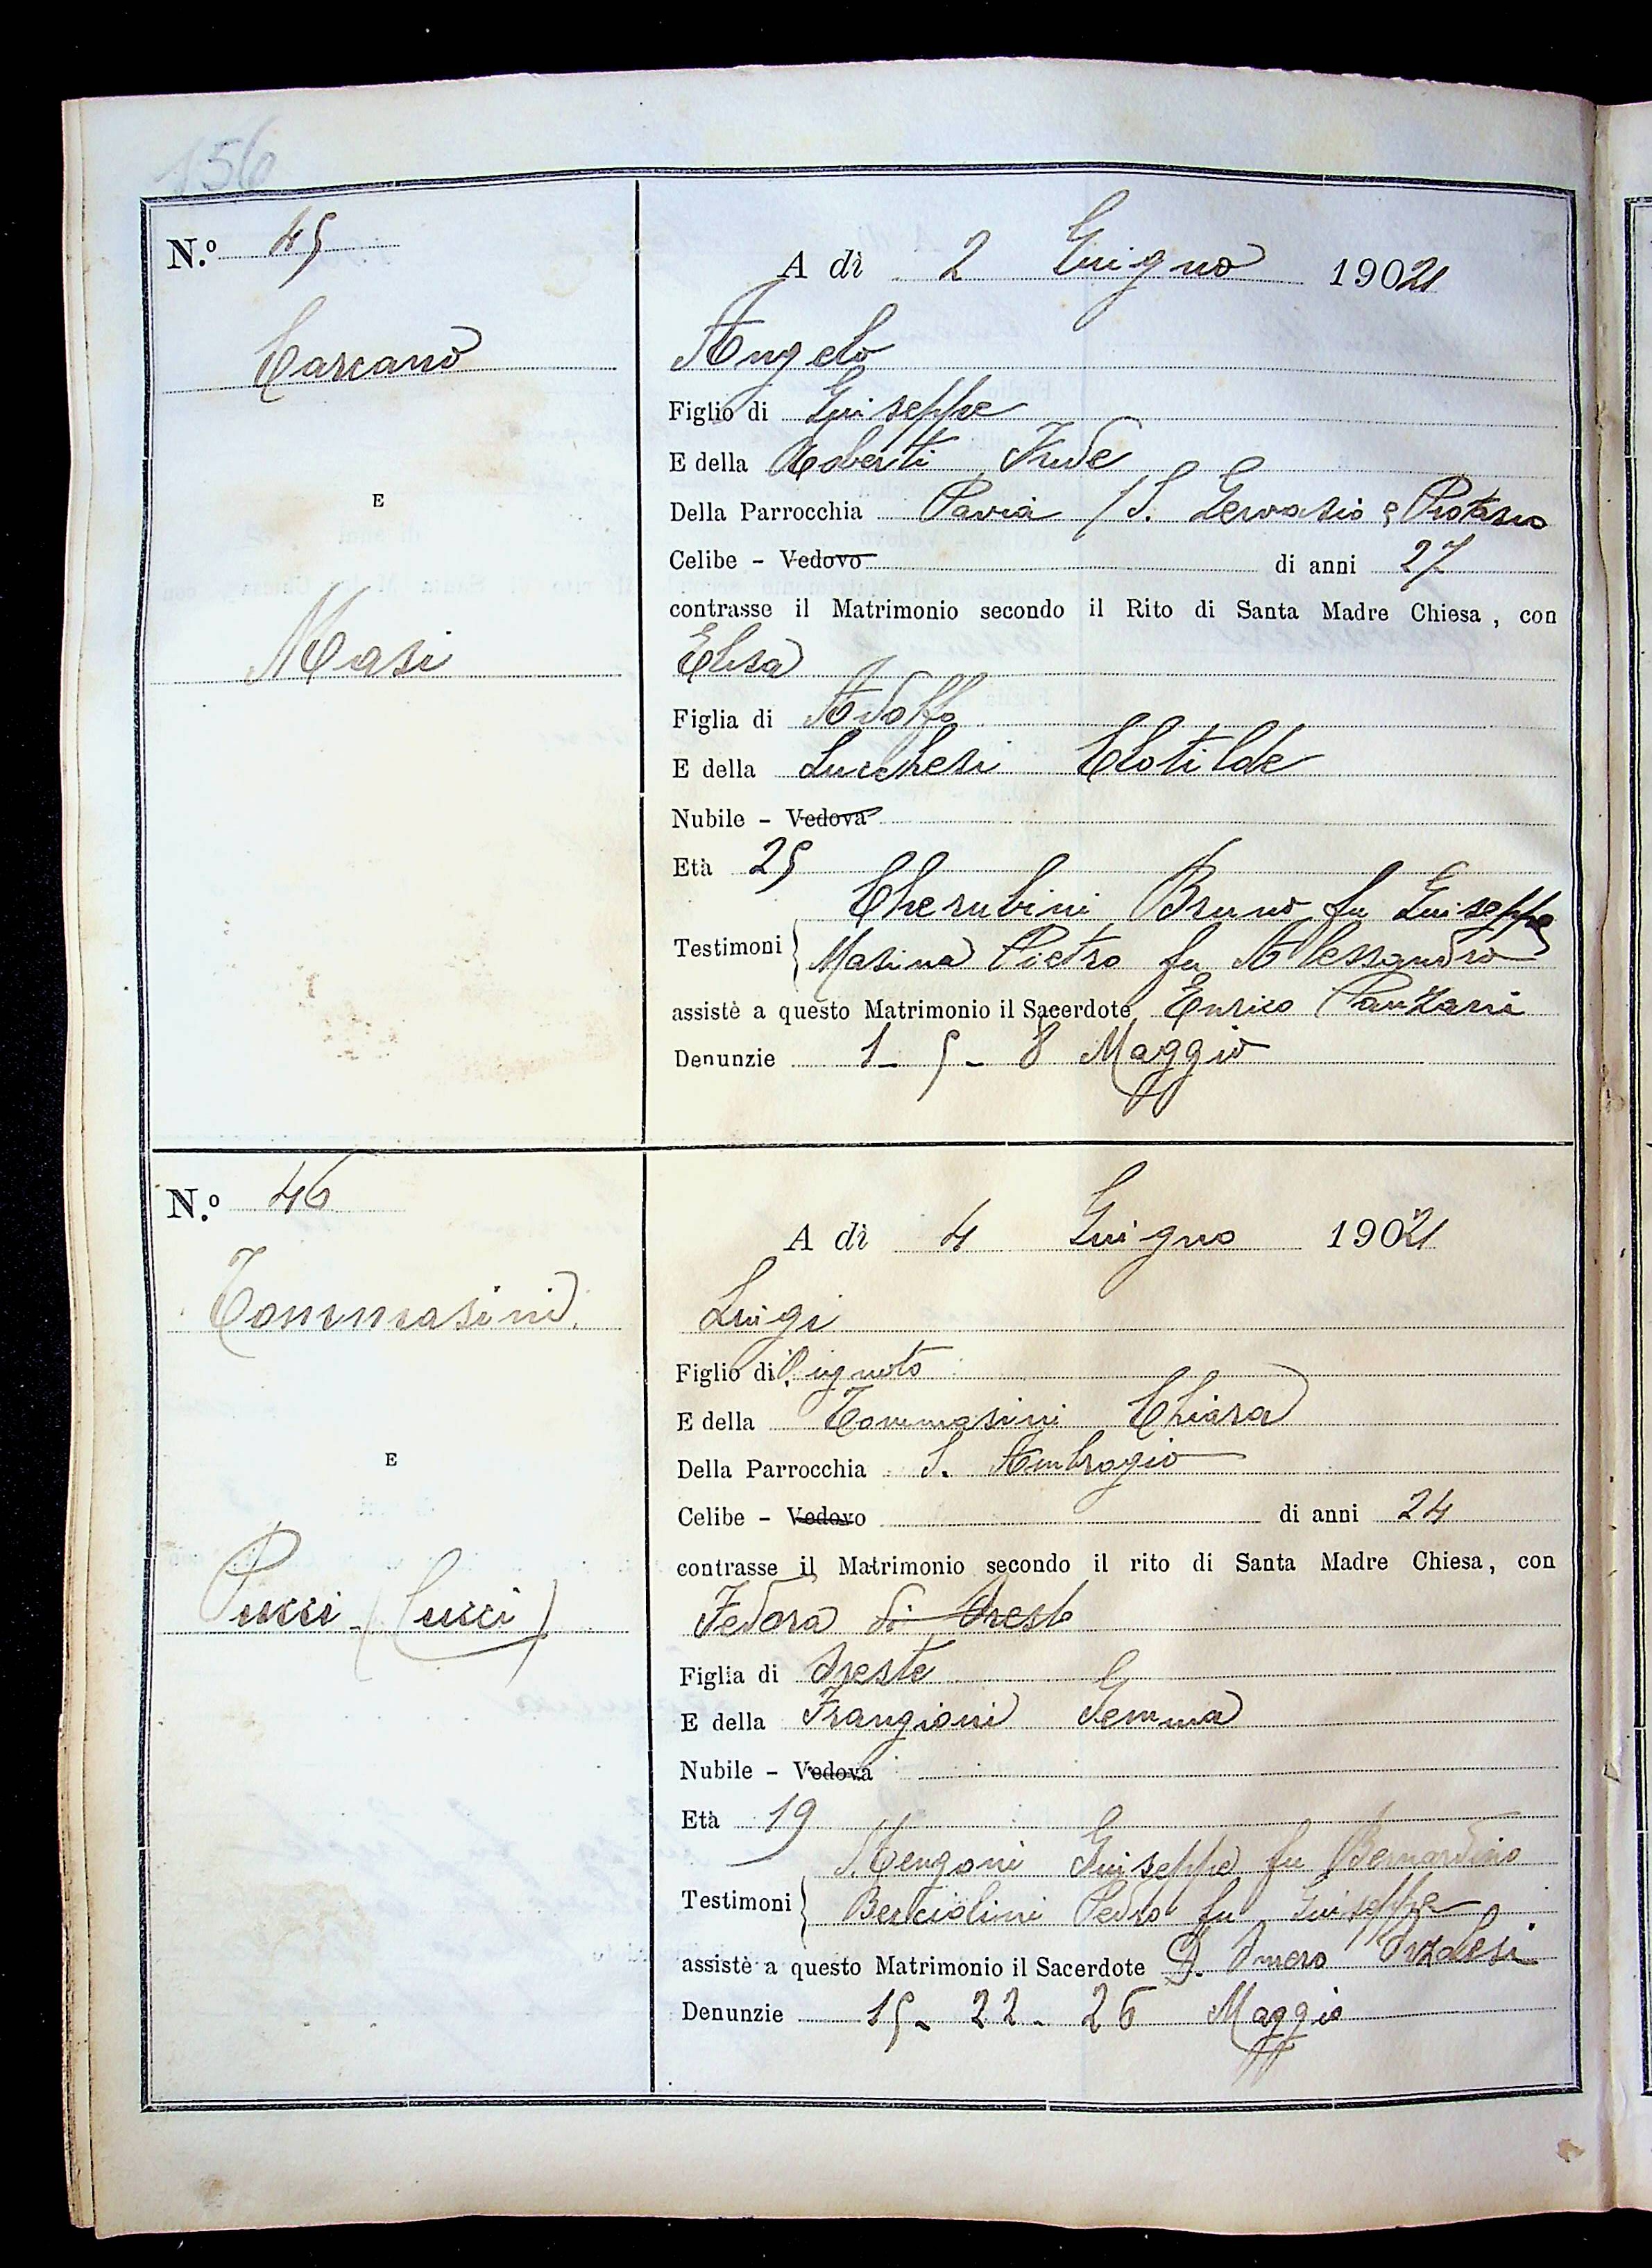 156
N.º 45
A dì 2 Giugno 1921
Carcano
Angelo
Figlio di Giuseppe
E della Roberti Jride
E
Della Parrocchia Pavia / S. Gervasio e Protasio
Celibe - Vedovo di anni 27
contrasse il Matrimonio secondo il Rito di Santa Madre Chiesa, con
Masi
Elisa
Figlia di Adolfo
E della Lucchesi Clotilde
Nubile - Vedova
Età 25
Cherubini Bruno fu Giuseppe
Testimoni
Masina Pietro fu Alessandro
assistè a questo Matrimonio il Sacerdote Enrico
Denunzie 1 - 5 - 8 Maggio
N.º 46
A dì 4 Giugno 1921
Tommasini
Luigi
Figlio di ignoto
E della Tommasini Chiara
E
Della Parrocchia S. Ambrogio
Celibe - Vedovo di anni 24
contrasse il Matrimonio secondo il rito di Santa Madre Chiesa, con
Pucci - (Cucci)
Fedora di Oreste
Figlia di Oreste
E della Frangioni Gemma
Nubile - Vedova
Età 19
Mengoni Giuseppe fu Bernardino
Testimoni
Berciolini Pedro fu Giuseppe
assistè a questo Matrimonio il Sacerdote D. Omero
Denunzie 15 - 22 - 26 Maggio